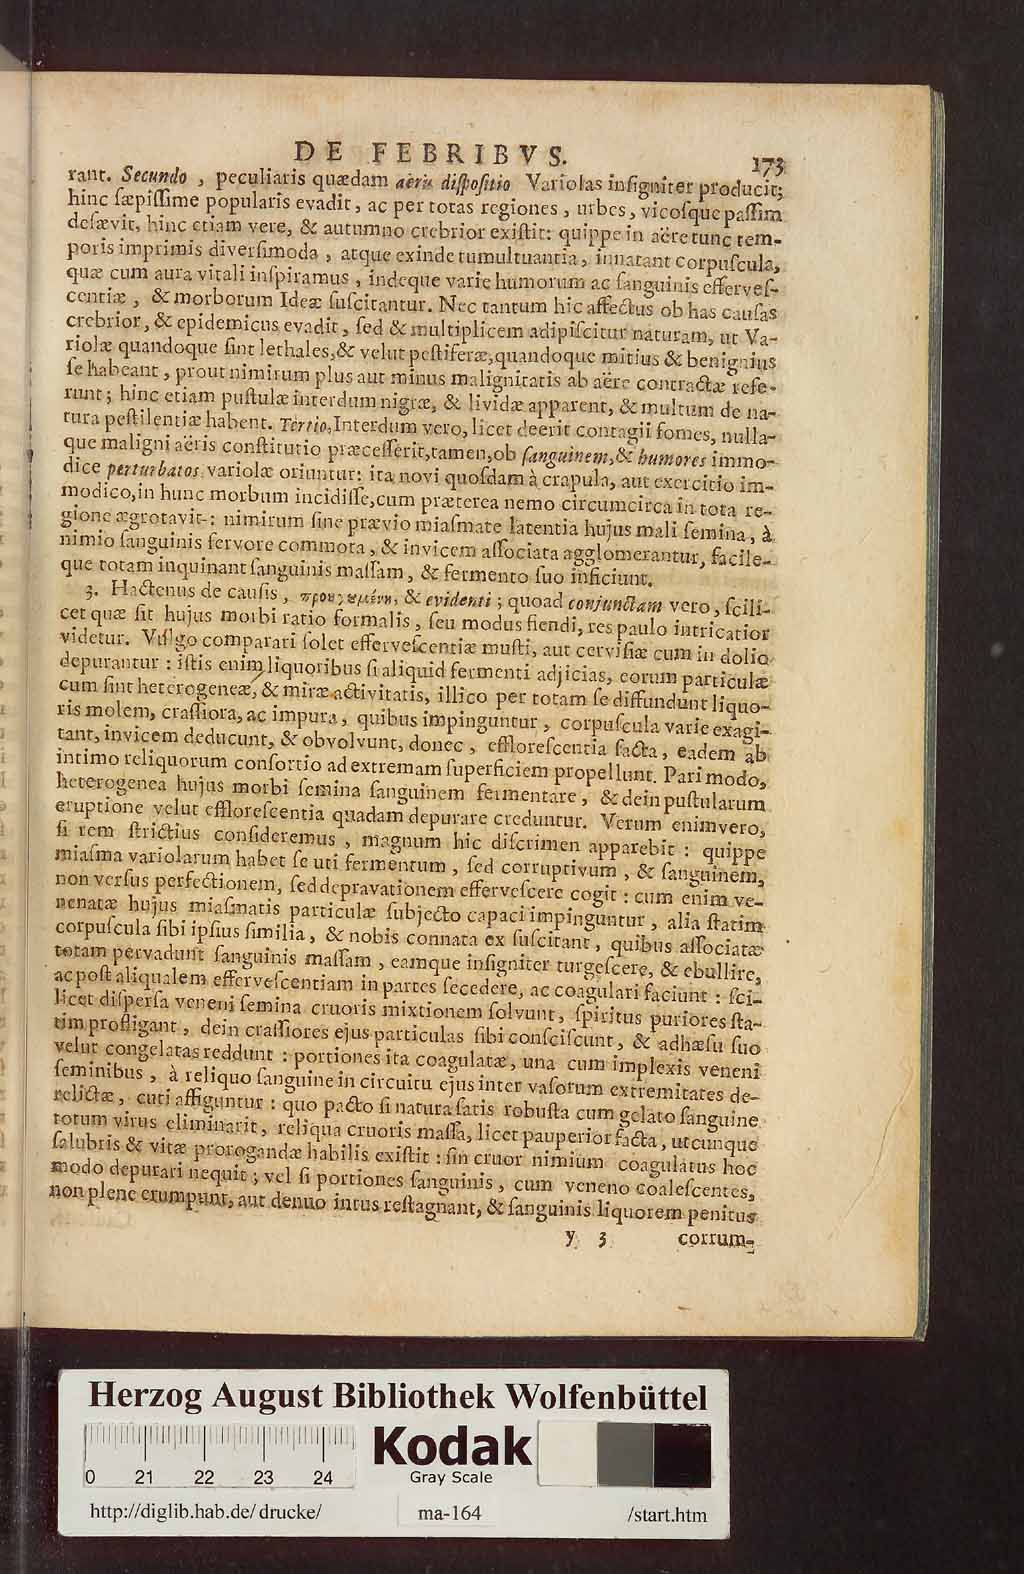 DE FEBRIBVS. 173
rant. Secundo, peculiaris quædam aëris diſpoſitio Variolas inſigniter producit;
hinc ſæpiſſime popularis evadit, ac per totas regiones, urbes, vicoſque paſſim
deſævit, hinc etiam vere, & autumno crebrior exiſtit: quippe in aëre tunc tem-
poris imprimis diverſimoda, atque exinde tumultuantia, innatant corpuſcula,
quæ cum aura vitali inſpiramus, indeque varie humorum ac ſanguinis efferveſ-
centiæ, & morborum Ideæ ſuſcitantur. Nec tantum hic affectus ob has cauſas
crebrior, & epidemicus evadit, ſed & multiplicem adipiſcitur naturam, ut Va-
riolæ quandoque ſint lethales, & velut peſtiferæ, quandoque mitius & benignius
ſe habeant, prout nimirum plus aut minus malignitatis ab aëre contractæ refe-
runt; hinc etiam puſtulæ interdum nigræ, & lividæ apparent, & multum de na-
tura peſtilentiæ habent. Tertio, Interdum vero, licet deerit contagii fomes, nulla-
que maligni aëris conſtitutio præceſſerit, tamen, ob ſanguinem, & humores immo-
dice perturbatos, variolæ oriuntur: ita novi quoſdam à crapula, aut exercitio im-
modico, in hunc morbum incidiſſe, cum præterea nemo circumcirca in tota re-
gione ægrotavit: nimirum ſine prævio miaſmate latentia hujus mali ſemina, à
nimio ſanguinis fervore commota, & invicem aſſociata agglomerantur, facile-
que totam inquinant ſanguinis maſſam, & fermento ſuo inficiunt.
3. Hactenus de cauſis, προηγȣμένη, & evidenti; quoad conjunctam vero, ſcili-
cet quæ ſit hujus morbi ratio formalis, ſeu modus fiendi, res paulo intricatior
videtur. Vulgo comparari ſolet efferveſcentiæ muſti, aut cerviſiæ cum in dolio
depurantur: iſtis enim liquoribus ſi aliquid fermenti adjicias, eorum particulæ
cum ſint heterogeneæ, & miræ activitatis, illico per totam ſe diffundunt liquo-
ris molem, craſſiora, ac impura, quibus impinguntur, corpuſcula varie exagi-
tant, invicem deducunt, & obvolvunt, donec, effloreſcentia facta, eadem ab
intimo reliquorum conſortio ad extremam ſuperficiem propellunt. Pari modo,
heterogenea hujus morbi ſemina ſanguinem fermentare, & dein puſtularum
eruptione velut effloreſcentia quadam depurare creduntur. Verum enimvero,
ſi rem ſtrictius conſideremus, magnum hic diſcrimen apparebit: quippe
miaſma variolarum habet ſe uti fermentum, ſed corruptivum, & ſanguinem,
non verſus perfectionem, ſed depravationem efferveſcere cogit: cum enim ve-
nenatæ hujus miaſmatis particulæ ſubjecto capaci impinguntur, alia ſtatim
corpuſcula ſibi ipſius ſimilia, & nobis connata ex ſuſcitant, quibus aſſociatæ
totam pervadunt ſanguinis maſſam, eamque inſigniter turgeſcere, & ebullire,
ac poſt aliqualem efferveſcentiam in partes ſecedere, ac coagulari faciunt: ſci-
licet diſperſa veneni ſemina cruoris mixtionem ſolvunt, ſpiritus puriores ſta-
tim profligant, dein craſſiores ejus particulas ſibi conſciſcunt, & adhæſu ſuo
velut congelatas reddunt: portiones ita coagulatæ, una cum implexis veneni
ſeminibus, à reliquo ſanguine in circuitu ejus inter vaſorum extremitates de-
relictæ, cuti affiguntur: quo pacto ſi natura ſatis robuſta cum gelato ſanguine
totum virus eliminarit, reliqua cruoris maſſa, licet pauperior facta, utcunque
ſalubris & vitæ prorogandæ habilis exiſtit: ſin cruor nimium coagulatus hoc
modo depurari nequit; vel ſi portiones ſanguinis, cum veneno coaleſcentes,
non plene erumpunt, aut denuo intus reſtagnant, & ſanguinis liquorem penitus
y 3 corrum-
Herzog August Bibliothek Wolfenbüttel
0 21 22 23 24
Kodak
Gray Scale
http://diglib.hab.de/drucke/ ma-164 /start.htm